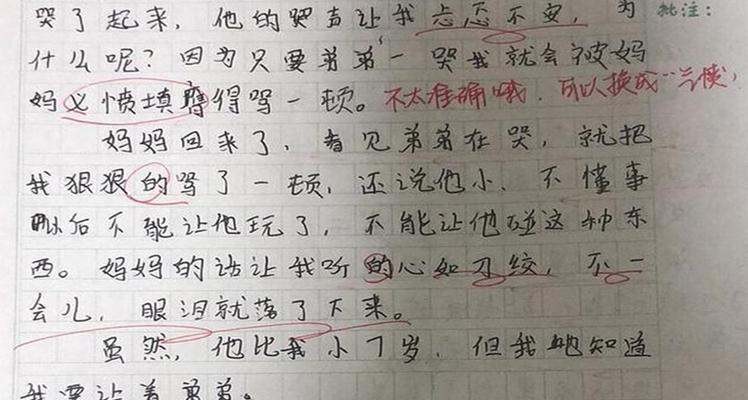 哭了起来，他的哭声让我忐忑不安，为
批注：
什么呢？因为只要弟弟一哭我就会被妈
妈义愤填膺得骂一顿。不太准确哦，可以换成“气愤”
妈妈回来了，看见弟弟在哭，就把
我狠狠的骂了一顿，还说他小、不懂事
以后不能让他玩了，不能让他碰这种东
西。妈妈的话让我听的心如刀绞，不一
会儿，眼泪就落了下来。
虽然，他比我小7岁，但我也知道
我要让着弟弟。